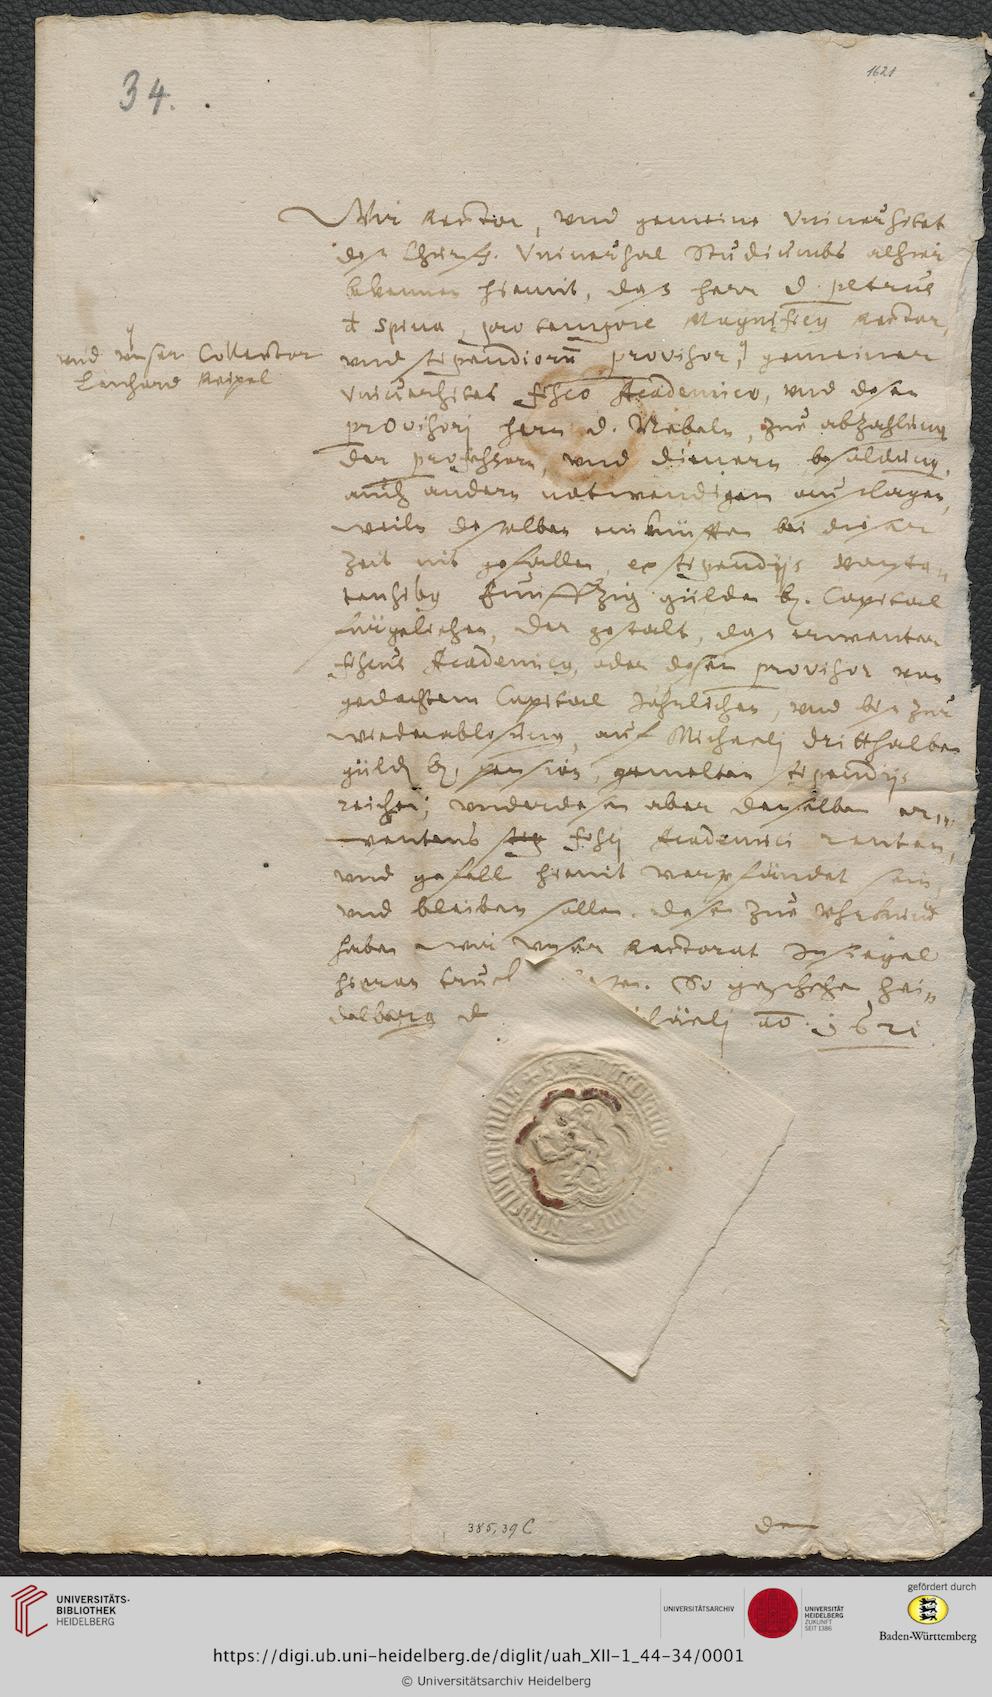 34.
1621
Wir Rector, und gemeine Universitet
des Churf. Universal Studiumbs alhier
bekennen hiemit, das herr D. Petrus
de Spina, pro tempore Magnificus Rector,
und stipendiorum provisor, gemeiner
und unser Collector
Lenhard Reipel
Universitet fisco Academico, und desen
provisori hern D. Nebeln, zue abzahlung
der professorn, und dienern besoldung,
auch andern notwendigen auslagen,
weiln deselben einkünften bei dieser
zeit nit gefallen, ex stipendijs
funffzig gülden Capital
fürgelichen, der gestalt, das erwenter
fiscus Academicus, oder desen provisor von
gedachtem Capital Jährlichen, und bis zur
wiederablosung, auf Michaelj dritthalben
güld pension, gemelten stipendijs
reichen, underdesen aber deselben er„
wentens fisci Academici renten,
und gefell hiemit verpfändet sein,
und bleiben sollen. desen zue uhrkund
haben wir unser Rectorat Insiegel
hieran truck. So geschehen Hei„
delberg d ao. 1621
385,39 C
UNIVERSITÄTS-
BIBLIOTHEK
HEIDELBERG
UNIVERSITÄTSARCHIV
UNIVERSITÄT
HEIDELBERG
ZUKUNFT
SEIT 1386
gefördert durch
Baden-Württemberg
https://digi.ub.uni-heidelberg.de/diglit/uah_XII-1_44-34/0001
© Universitätsarchiv Heidelberg